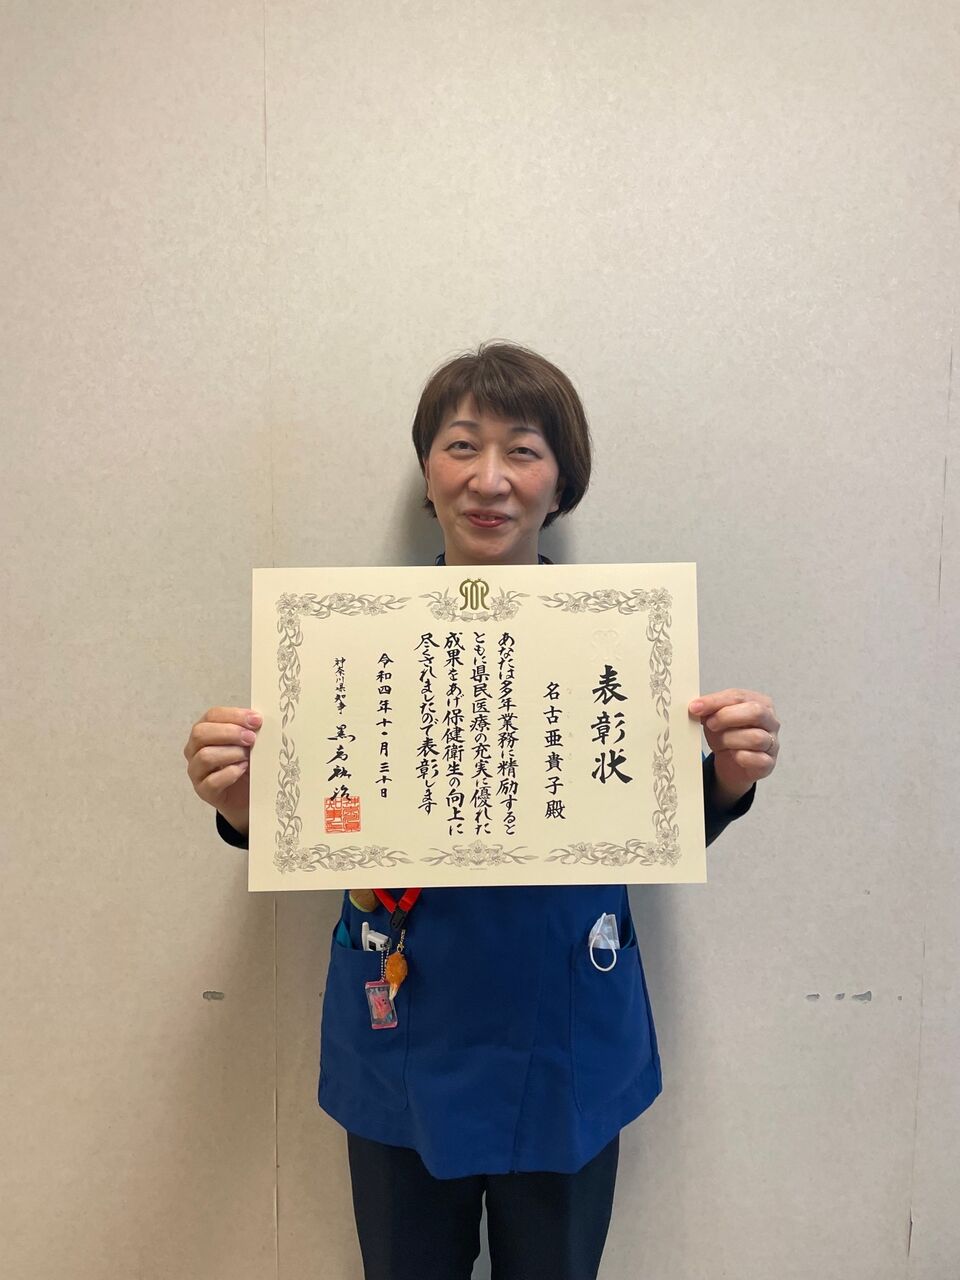 表彰状
名古亜貴子殿
あなたは多年業務に精励すると
ともに県民医療の充実に優れた
成果をあげ保健衛生の向上に
尽くされましたので表彰します
令和四年十一月三十日
神奈川県知事 黒岩祐治